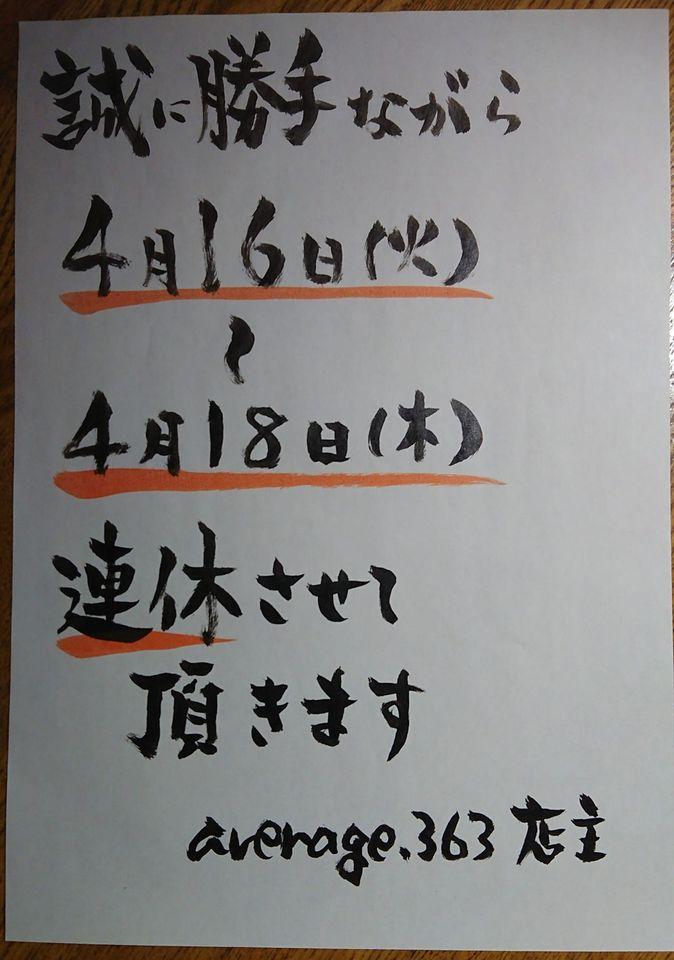 誠に勝手ながら
4月16日(火)
〜
4月18日(木)
連休させて
頂きます
average.363 店主